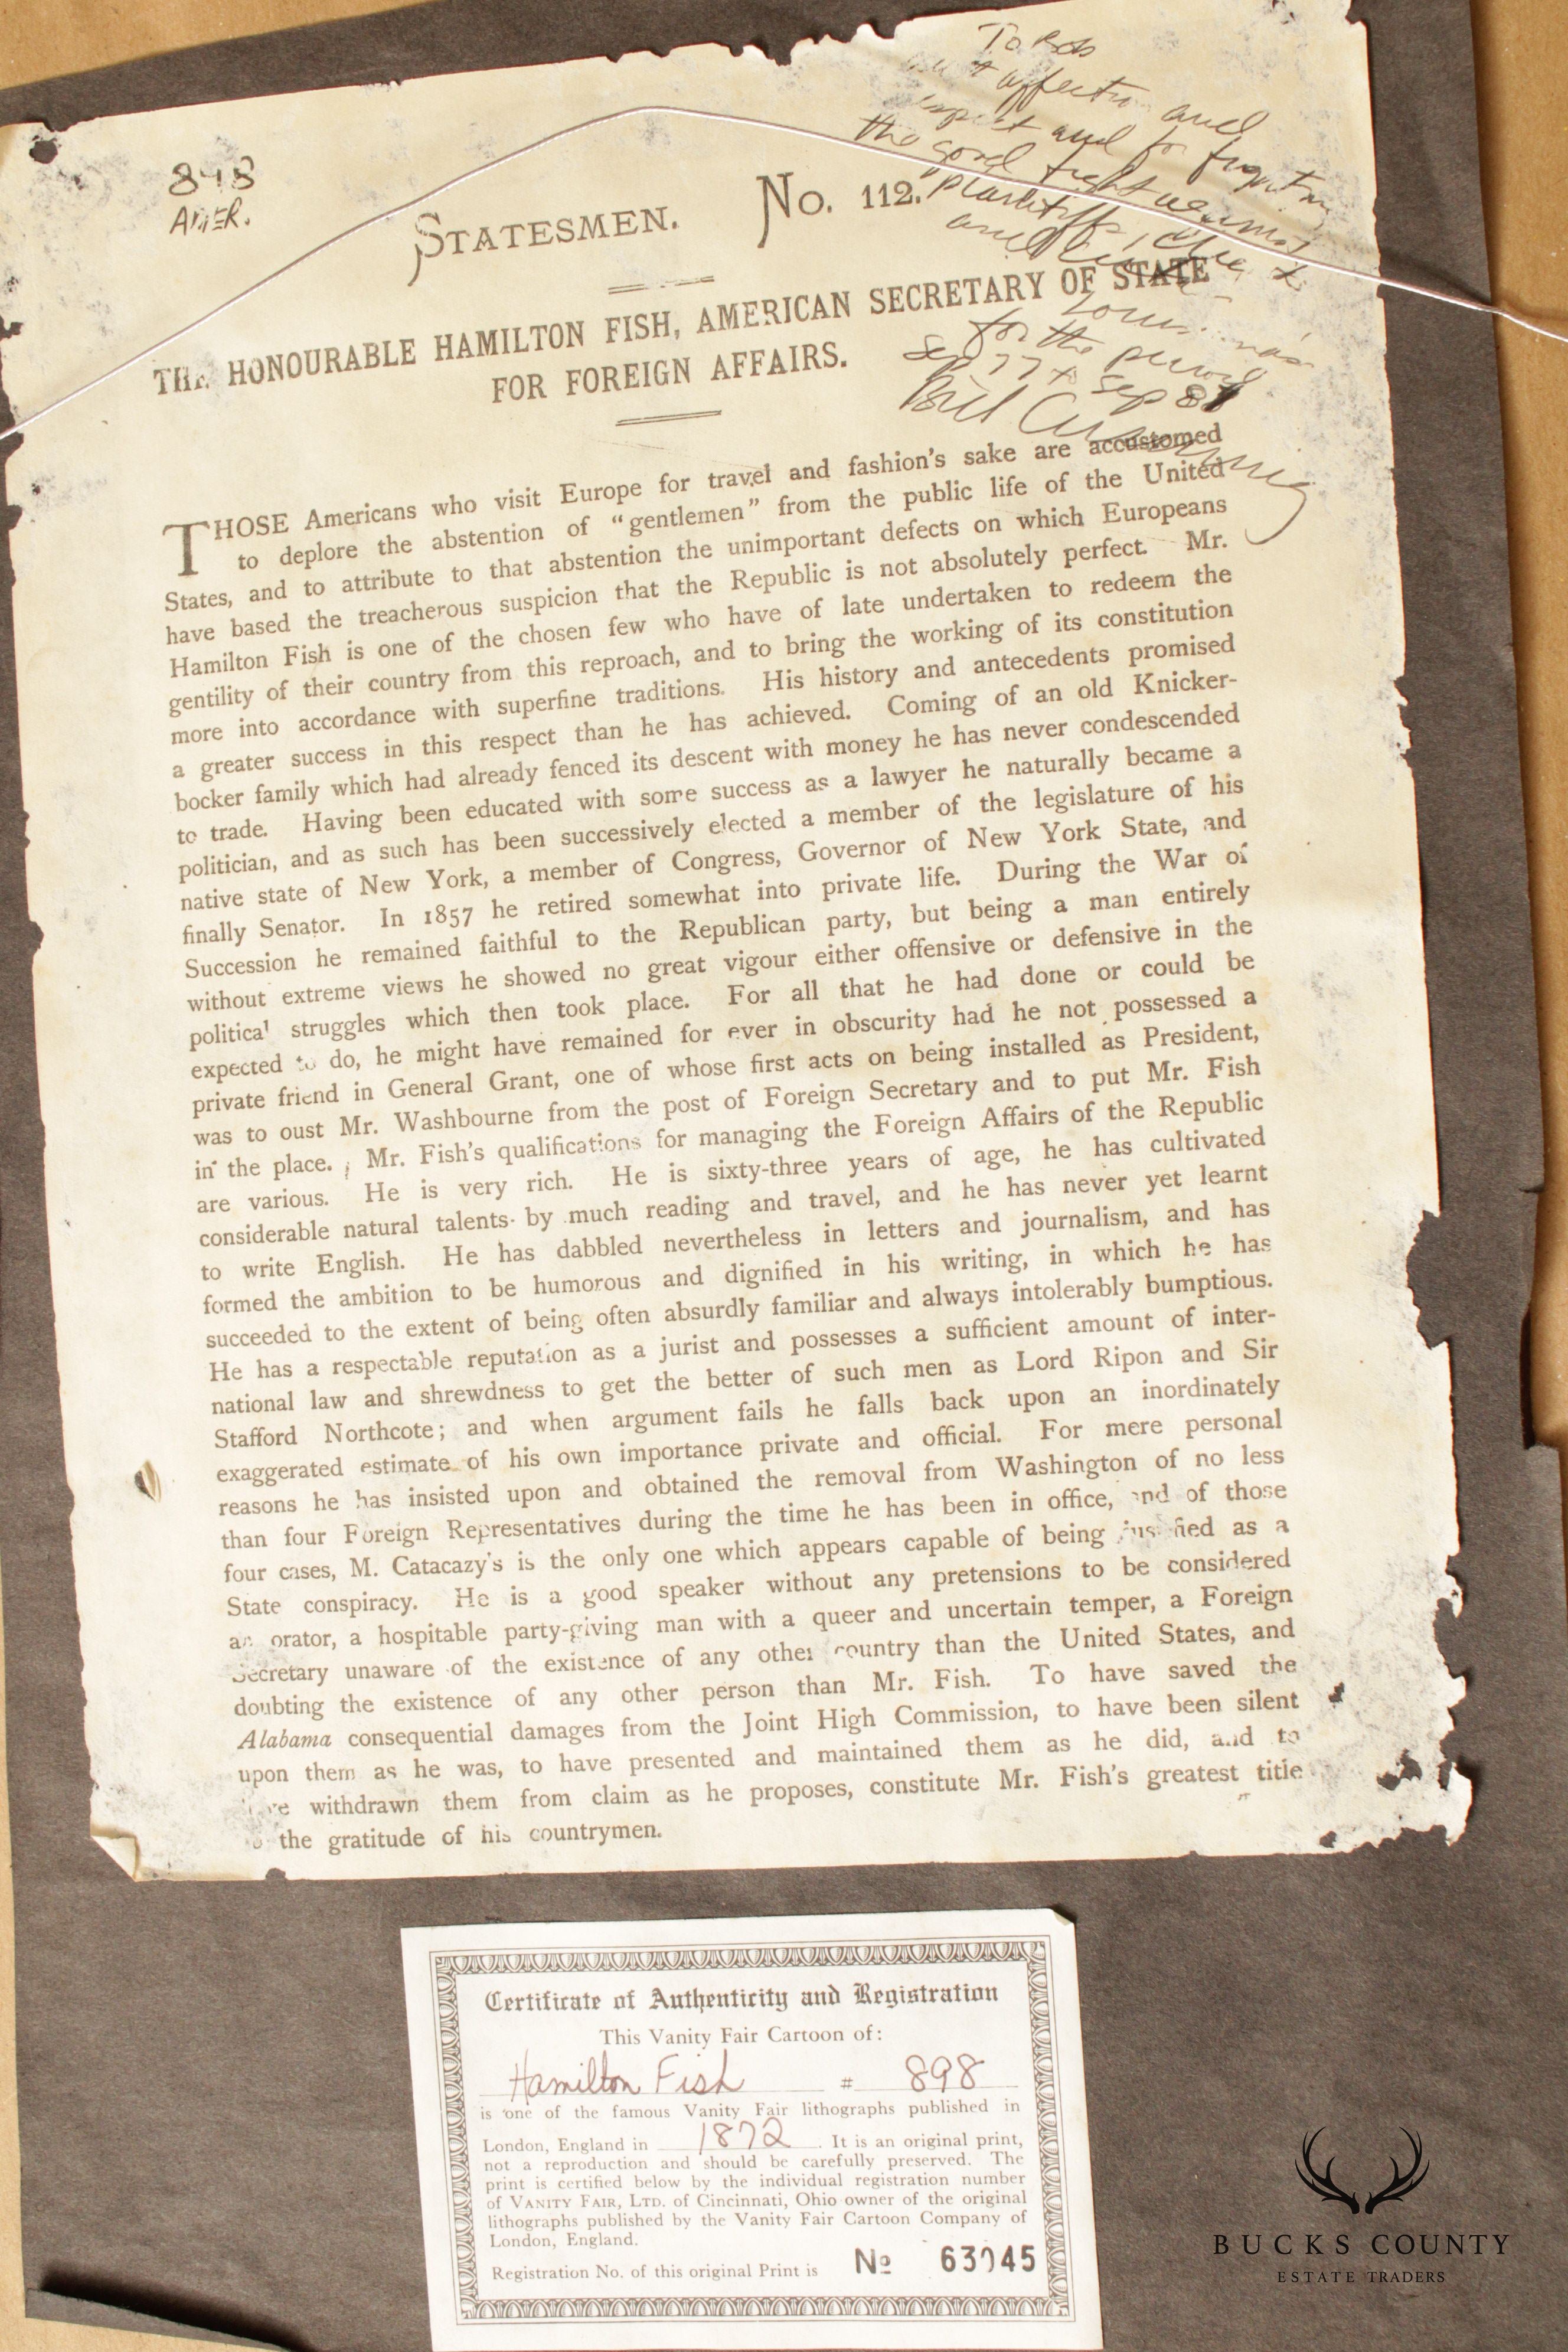 To Bob
affection and
respect and for fighting
the good fight against
plaintiffs,
and
for the period
Sep 77 to Sep 81
Bill
898
AMER.
STATESMEN. No. 112.
THE HONOURABLE HAMILTON FISH, AMERICAN SECRETARY OF STATE
FOR FOREIGN AFFAIRS.
THOSE Americans who visit Europe for travel and fashion's sake are accustomed
to deplore the abstention of "gentlemen" from the public life of the United
States, and to attribute to that abstention the unimportant defects on which Europeans
have based the treacherous suspicion that the Republic is not absolutely perfect. Mr.
Hamilton Fish is one of the chosen few who have of late undertaken to redeem the
gentility of their country from this reproach, and to bring the working of its constitution
more into accordance with superfine traditions. His history and antecedents promised
a greater success in this respect than he has achieved. Coming of an old Knicker-
bocker family which had already fenced its descent with money he has never condescended
to trade. Having been educated with some success as a lawyer he naturally became a
politician, and as such has been successively elected a member of the legislature of his
native state of New York, a member of Congress, Governor of New York State, and
finally Senator. In 1857 he retired somewhat into private life. During the War of
Succession he remained faithful to the Republican party, but being a man entirely
without extreme views he showed no great vigour either offensive or defensive in the
political struggles which then took place. For all that he had done or could be
expected to do, he might have remained for ever in obscurity had he not possessed a
private friend in General Grant, one of whose first acts on being installed as President,
was to oust Mr. Washbourne from the post of Foreign Secretary and to put Mr. Fish
in the place. Mr. Fish's qualifications for managing the Foreign Affairs of the Republic
are various. He is very rich. He is sixty-three years of age, he has cultivated
considerable natural talents by much reading and travel, and he has never yet learnt
to write English. He has dabbled nevertheless in letters and journalism, and has
formed the ambition to be humorous and dignified in his writing, in which he has
succeeded to the extent of being often absurdly familiar and always intolerably bumptious.
He has a respectable reputation as a jurist and possesses a sufficient amount of inter-
national law and shrewdness to get the better of such men as Lord Ripon and Sir
Stafford Northcote; and when argument fails he falls back upon an inordinately
exaggerated estimate of his own importance private and official. For mere personal
reasons he has insisted upon and obtained the removal from Washington of no less
than four Foreign Representatives during the time he has been in office, and of those
four cases, M. Catacazy's is the only one which appears capable of being justified as a
State conspiracy. He is a good speaker without any pretensions to be considered
an orator, a hospitable party-giving man with a queer and uncertain temper, a Foreign
Secretary unaware of the existence of any other country than the United States, and
doubting the existence of any other person than Mr. Fish. To have saved the
Alabama consequential damages from the Joint High Commission, to have been silent
upon them as he was, to have presented and maintained them as he did, and to
have withdrawn them from claim as he proposes, constitute Mr. Fish's greatest title
to the gratitude of his countrymen.
Certificate of Authenticity and Registration
This Vanity Fair Cartoon of:
Hamilton Fish # 898
is one of the famous Vanity Fair lithographs published in
London, England in 1872. It is an original print,
not a reproduction and should be carefully preserved. The
print is certified below by the individual registration number
of VANITY FAIR, LTD. of Cincinnati, Ohio owner of the original
lithographs published by the Vanity Fair Cartoon Company of
London, England.
Registration No. of this original Print is No 63045
BUCKS COUNTY
ESTATE TRADERS